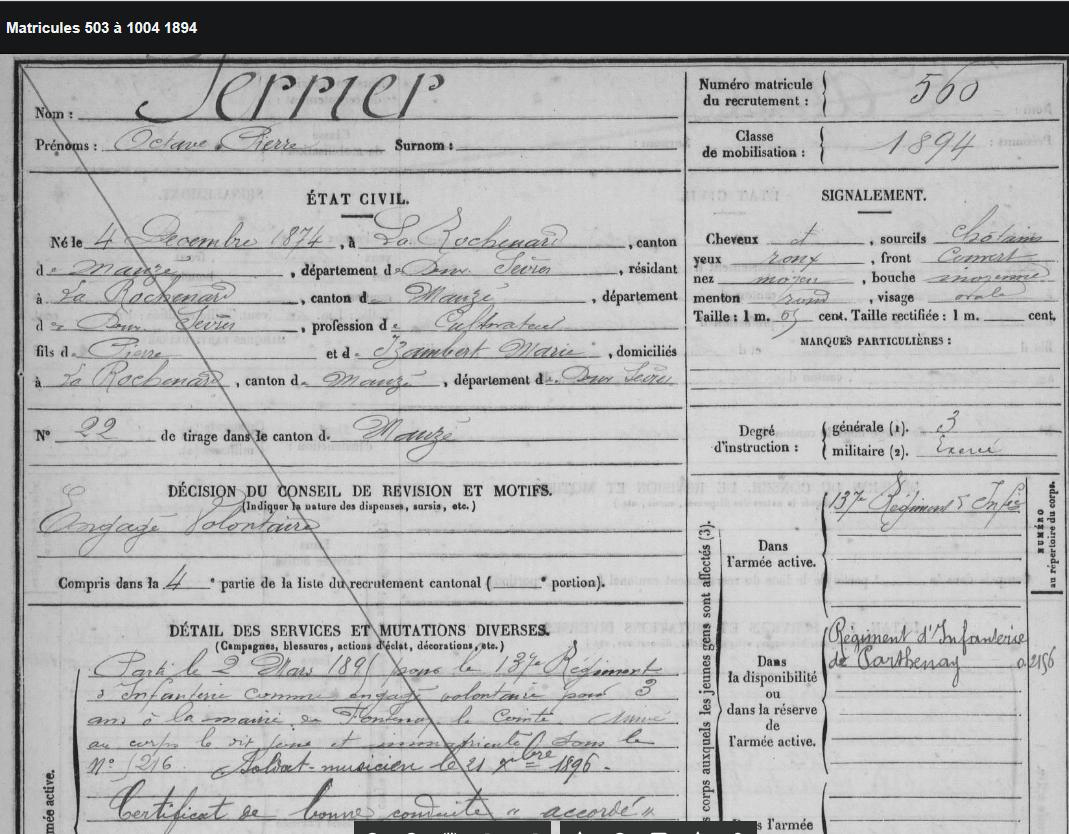 Matricules 503 à 1004 1894
Nom : Perrier
Prénoms : Octave Pierre Surnom :
Numéro matricule du recrutement : 560
Classe de mobilisation : 1894
ÉTAT CIVIL.
Né le 4 Decembre 1874, à La Rochenard, canton
de Mauzé, département de Deux Sèvres, résidant
à La Rochenard, canton de Mauzé, département
de Deux Sèvres, profession de Cultivateur
fils de Pierre et de Izambert Marie, domiciliés
à La Rochenard, canton de Mauzé, département de Deux Sèvres
N° 22 de tirage dans le canton de Mauzé
SIGNALEMENT.
Cheveux et, sourcils châtains
yeux roux, front Couvert
nez moyen, bouche moyenne
menton rond, visage ovale
Taille : 1 m. 65 cent. Taille rectifiée : 1 m. cent.
MARQUES PARTICULIÈRES :
Degré d'instruction : générale (1). 3
militaire (2). Exercé
DÉCISION DU CONSEIL DE REVISION ET MOTIFS.
(Indiquer la nature des dispenses, sursis, etc.)
Engagé Volontaire
Compris dans la 4e partie de la liste du recrutement cantonal ( e portion).
DÉTAIL DES SERVICES ET MUTATIONS DIVERSES.
(Campagnes, blessures, actions d'éclat, décorations, etc.)
Parti le 2 Mars 189 pour le 137e Régiment
d'Infanterie comme engagé volontaire pour 3
ans à la mairie de Fontenay le Comte. Arrivé
au corps le dit jour et immatriculé sous le
N° 216. Soldat-musicien le 21 Xbre 1896.
Certificat de bonne conduite « accordé »
mée active.
corps auxquels les jeunes gens sont affectés (3).
Dans
l'armée active.
137e Régiment d'Infie
NUMÉRO
au répertoire du corps.
Dans
la disponibilité
ou
dans la réserve
de
l'armée active.
Régiment d'Infanterie
de Parthenay
2156
Dans l'armée